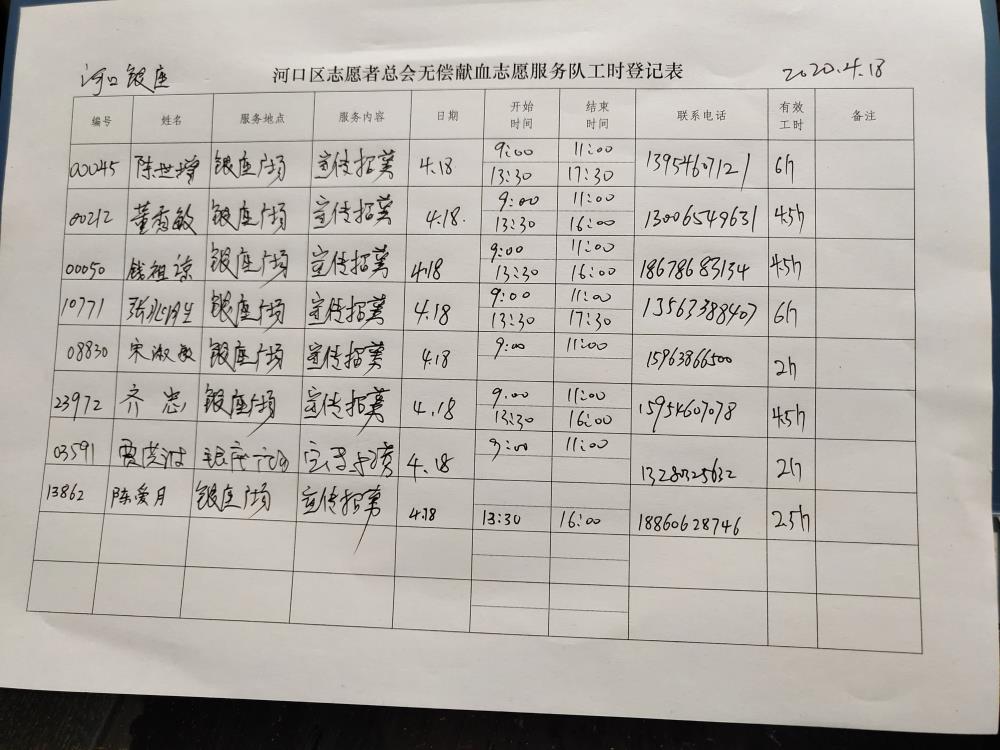 河口银座 河口区志愿者总会无偿献血志愿服务队工时登记表 2020.4.18
编号 姓名 服务地点 服务内容 日期 开始时间 结束时间 联系电话 有效工时 备注
00045 陈世增 银座广场 宣传招募 4.18 9:00 11:00 13954607121 6h
13:30 17:30
00212 董香敏 银座广场 宣传招募 4.18. 9:00 11:00 13006549631 4.5h
13:30 16:00
00050 钱祖谅 银座广场 宣传招募 4.18 9:00 11:00 18678683134 4.5h
13:30 16:00
10771 张兆生 银座广场 宣传招募 4.18 9:00 11:00 13563388407 6h
13:30 17:30
08830 宋淑敏 银座广场 宣传招募 4.18 9:00 11:00 15963866500 2h
23972 齐忠 银座广场 宣传招募 4.18 9.00 11:00 15954607078 4.5h
13:30 16:00
03591 银座广场 宣传招募 4.18 9:00 11:00 13280325632 2h
13862 陈爱月 银座广场 宣传招募 4.18 13:30 16:00 18860628746 2.5h